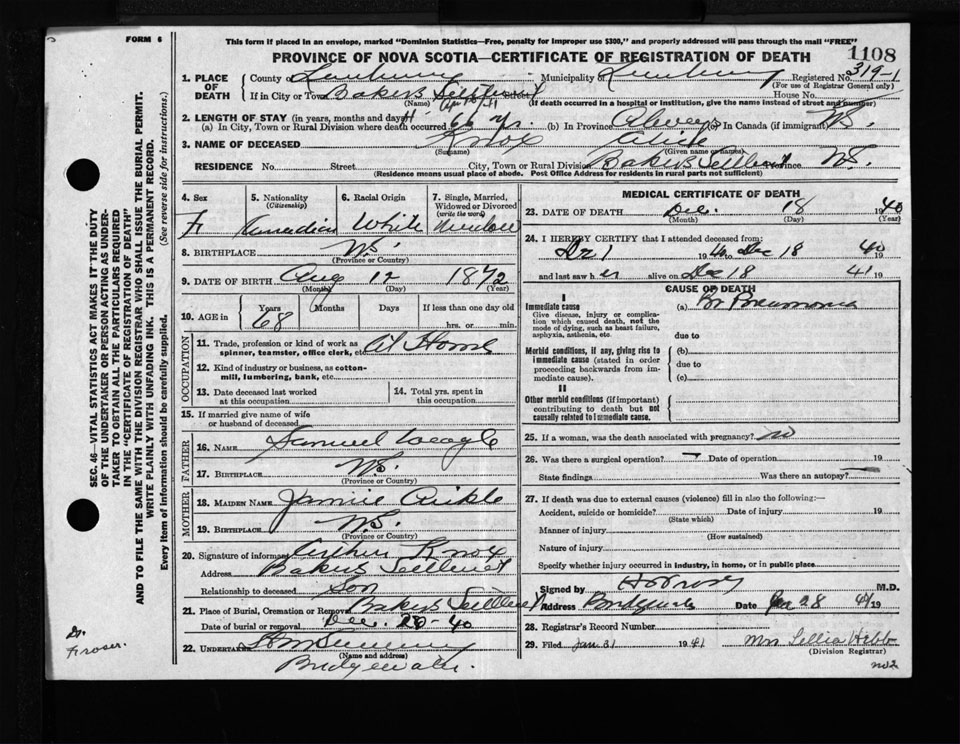 FORM 6
This form if placed in an envelope, marked "Dominion Statistics—Free, penalty for improper use $300," and properly addressed will pass through the mail "FREE"
1108
PROVINCE OF NOVA SCOTIA—CERTIFICATE OF REGISTRATION OF DEATH
1. PLACE OF DEATH
County of Lunenburg Municipality of Lunenburg Registered No. 319-1
(For use of Registrar General only)
If in City or Town Bakers Settlement House No.
(Name) (If death occurred in a hospital or institution, give the name instead of street and number)
2. LENGTH OF STAY (in years, months and days)
(a) In City, Town or Rural Division where death occurred 66 yrs. (b) In Province Always (c) In Canada (if immigrant) N.S.
3. NAME OF DECEASED Knox
(Surname) (Given name or names)
RESIDENCE No. Street City, Town or Rural Division Bakers Settlement Province N.S.
(Residence means usual place of abode. Post Office Address for residents in rural parts not sufficient)
4. Sex 5. Nationality (Citizenship) 6. Racial Origin 7. Single, Married, Widowed or Divorced (write the word)
F Canadian White Widow
8. BIRTHPLACE N.S.
(Province or Country)
9. DATE OF BIRTH Aug 12 1872
(Month) (Day) (Year)
10. AGE in Years Months Days If less than one day
68 hrs. or min.
OCCUPATION
11. Trade, profession or kind of work as spinner, teamster, office clerk, etc. At Home
12. Kind of industry or business, as cotton-mill, lumbering, bank, etc.
13. Date deceased last worked at this occupation
14. Total yrs. spent in this occupation
15. If married give name of wife or husband of deceased
FATHER
16. NAME Samuel Veagle
17. BIRTHPLACE N.S.
(Province or Country)
MOTHER
18. MAIDEN NAME
19. BIRTHPLACE N.S.
(Province or Country)
20. Signature of informant Arthur Knox
Address Bakers Settlement
Relationship to deceased Son
21. Place of Burial, Cremation or Removal Bakers Settlement
Date of burial or removal Dec. 20-40
22. UNDERTAKER
(Name and Address)
Bridgewater
MEDICAL CERTIFICATE OF DEATH
23. DATE OF DEATH Dec. 18 1940
(Month) (Day) (Year)
24. I HEREBY CERTIFY that I attended deceased from:
Dec 1 1940 to Dec 18 1940
and last saw her alive on Dec 18 41 19
CAUSE OF DEATH
I
Immediate cause
Give disease, injury or complication which caused death, not the mode of dying, such as heart failure, asphyxia, asthenia, etc.
(a) Br Pneumonia
due to
Morbid conditions, if any, giving rise to immediate cause (stated in order proceeding backwards from immediate cause).
(b)
due to
(c)
II
Other morbid conditions (if important) contributing to death but not causally related to immediate cause.
25. If a woman, was the death associated with pregnancy? no
26. Was there a surgical operation? — Date of operation 19
State findings Was there an autopsy?
27. If death was due to external causes (violence) fill in also the following:—
Accident, suicide or homicide? Date of injury 19
(State which)
Manner of injury
(How sustained)
Nature of injury
Specify whether injury occurred in industry, in home, or in public place
Signed by M.D.
Address Bridgewater Date Jan 28 41 19
28. Registrar's Record Number
29. Filed Jan 31 1941 Mrs Lellia Hebb
(Division Registrar)
SEC. 46—VITAL STATISTICS ACT MAKES IT THE DUTY
OF THE UNDERTAKER OR PERSON ACTING AS UNDER-
TAKER TO OBTAIN ALL THE PARTICULARS REQUIRED
IN THE "CERTIFICATE OF REGISTRATION OF DEATH"
AND TO FILE THE SAME WITH THE DIVISION REGISTRAR WHO SHALL ISSUE THE BURIAL PERMIT.
WRITE PLAINLY WITH UNFADING INK. THIS IS A PERMANENT RECORD.
Every item of information should be carefully supplied. (See reverse side for instructions.)
Dr.
Froser.